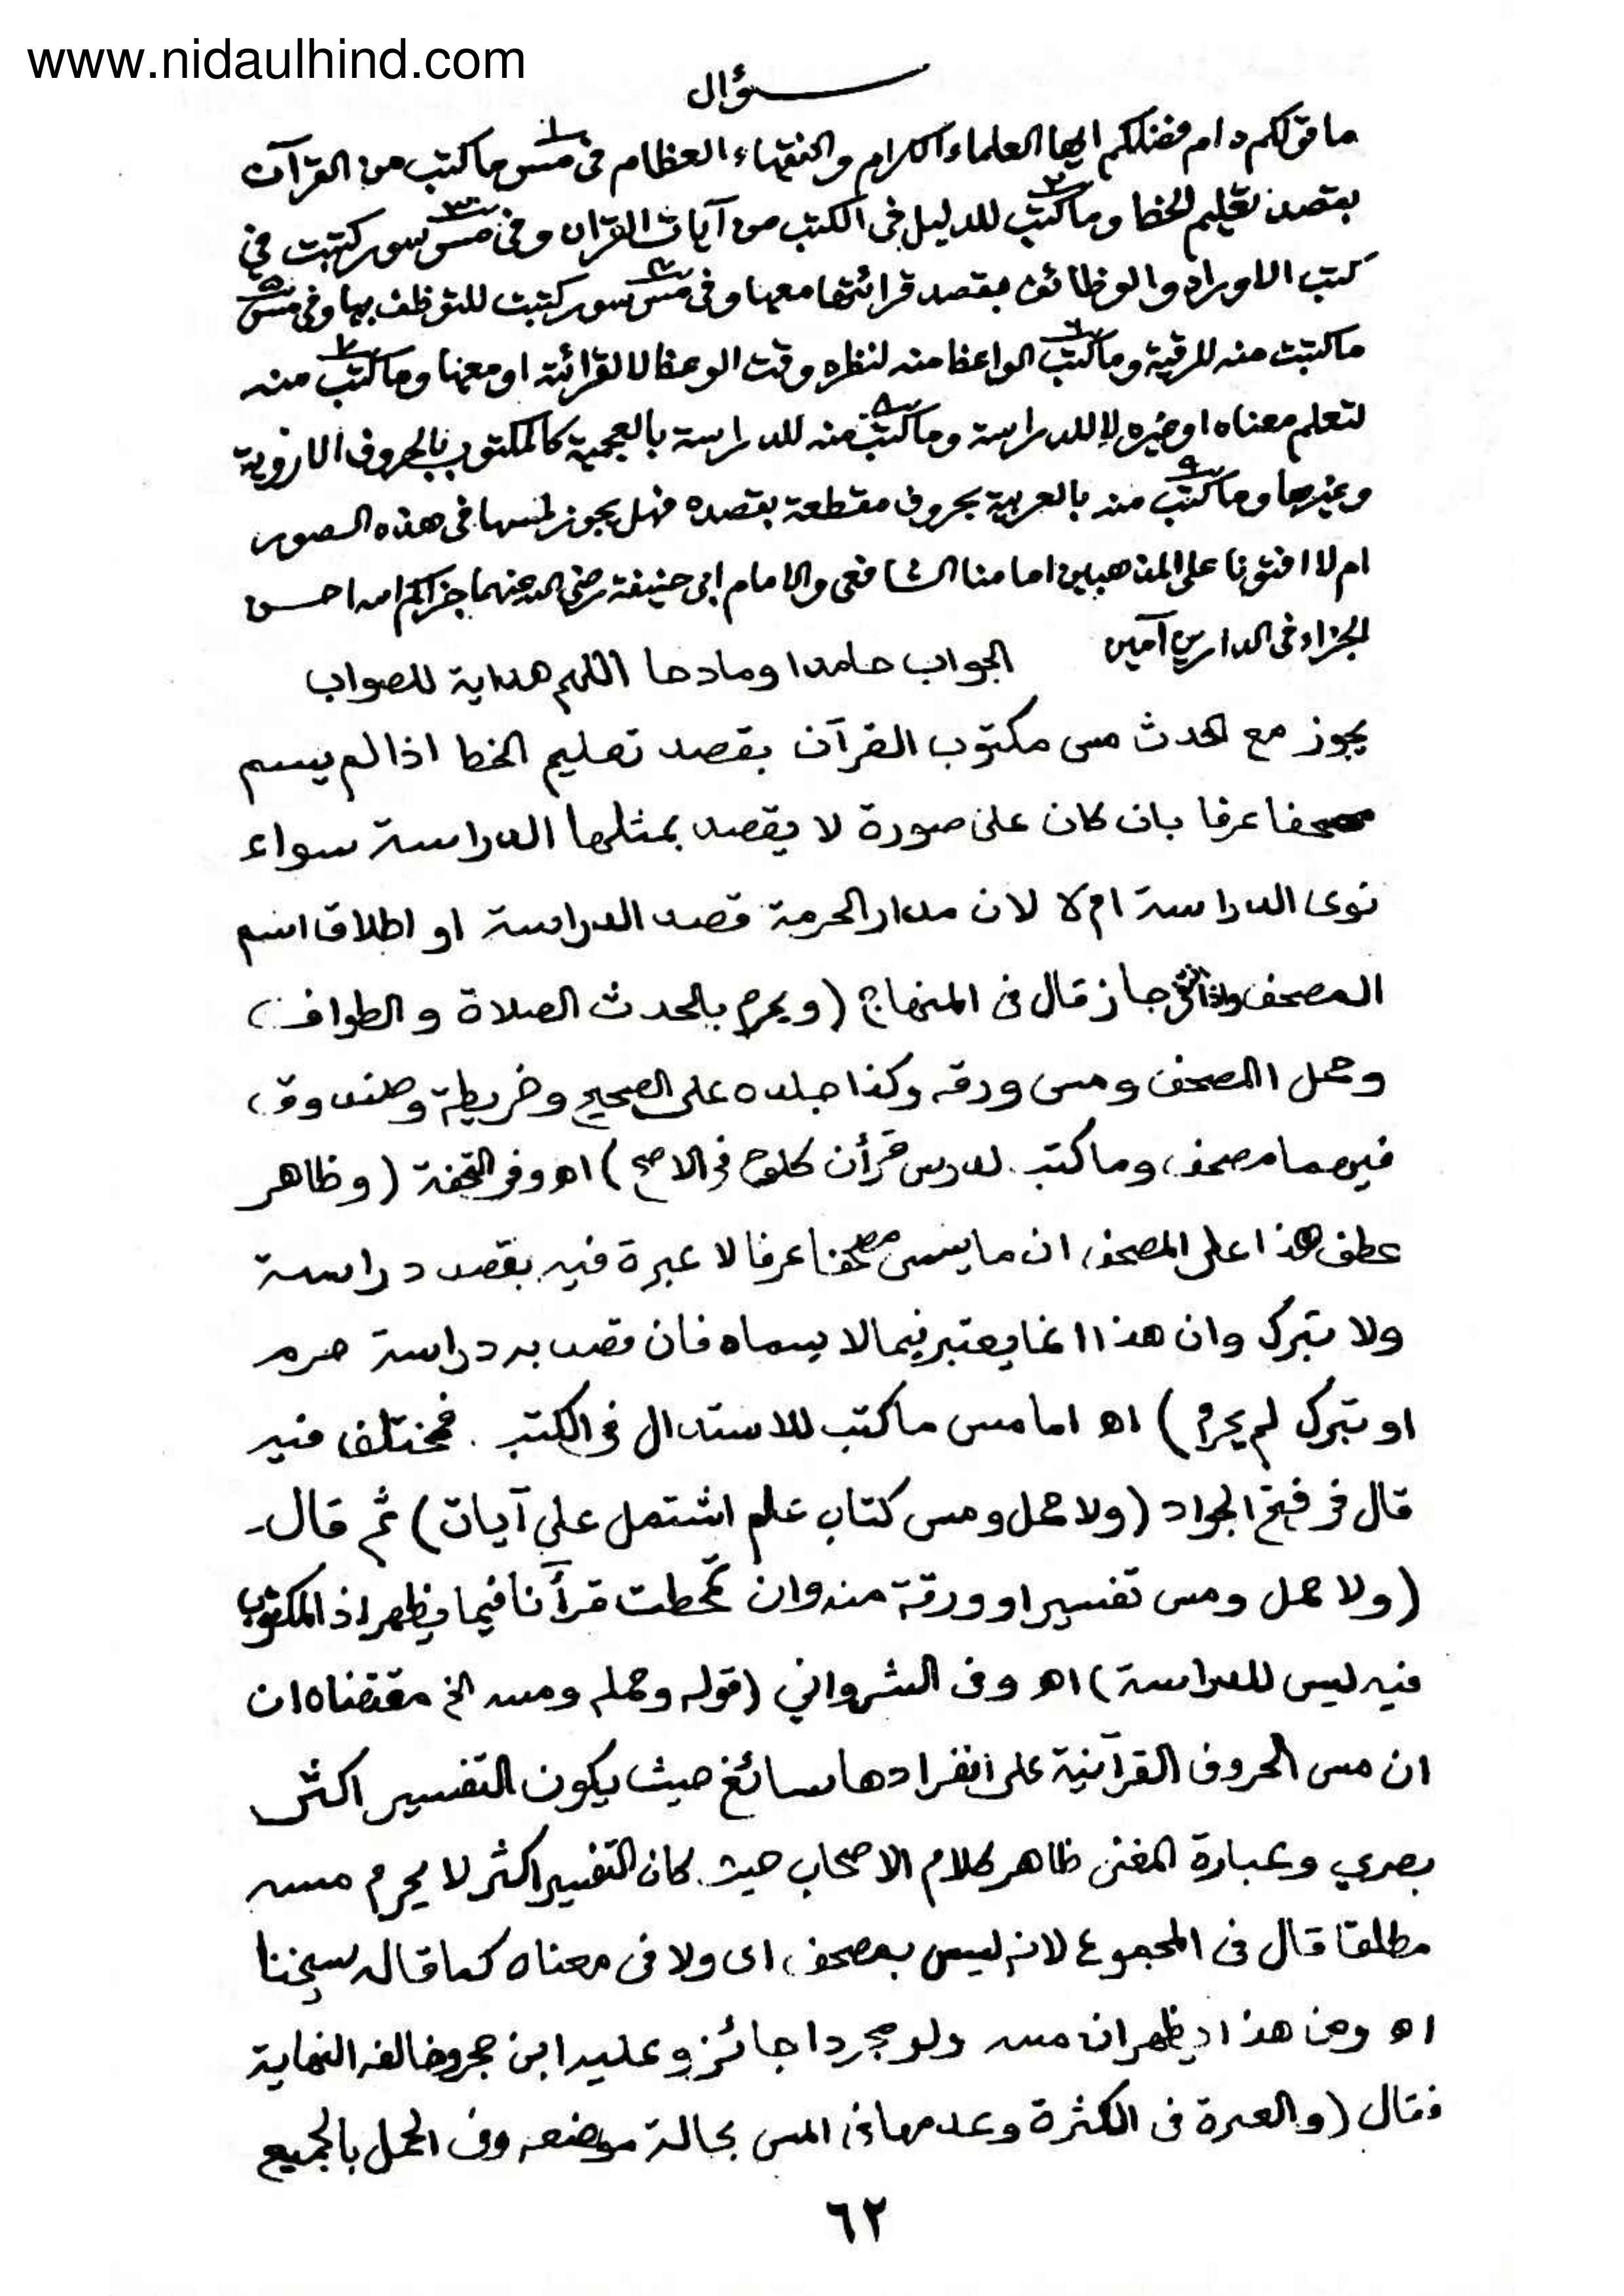 www.nidaulhind.com
سؤال
ما قولكم دام فضلكم ايها العلماء الكرام والفقهاء العظام فى مس ١ ما كتب من القرآن
بقصد تعليم الخط وما كتب ٢ للدليل فى الكتب من آيات القران وفى مس ٣ سور كتبت في
كتب الاوراد والوظائف بقصد قرائتها معها وفى مس ٤ سور كتبت للتوظف بها وفى مس ٥
ما كتبت منه للرقية وما كتب ٦ الواعظ منه لنظره وقت الوعظ لا لقرائته او معها وما كتب ٧ منه
لتعلم معناه او غيره لا للدراسة وما كتب ٨ منه للدراسة بالعجمية كالمكتوب بالحروف الاروية
وغيرها وما كتب ٩ منه بالعربية بحروف مقطعة بقصده فهل يجوز لمسها فى هذه الصور
ام لا افتونا على المذهبين امامنا الشافعى والامام ابى حنيفة رضي الله عنهما جزاكم الله احسن
الجزاء فى الدارين آمين الجواب حامدا ومادحا اللهم هداية للصواب
يجوز مع الحدث مس مكتوب القرآن بقصد تعليم الخط اذا لم يسم
مصحفا عرفا بان كان على صورة لا يقصد بمثلها الدراسة سواء
نوى الدراسة ام لا لان مدار الحرمة قصد الدراسة او اطلاق اسم
المصحف واذا انتفى جاز قال فى المنهاج (ويحرم بالحدث الصلاة و الطواف
وحمل المصحف ومس ورقه وكذا جلده على الصحيح وخريطة وصندوق
فيهما مصحف وما كتب لدرس قرأن كلوح فى الاصح) اه وفى التحفة (وظاهر
عطف هذا على المصحف ان ما يسمى مصحفا عرفا لا عبرة فيه بقصد دراسة
ولا تبرك وان هذا انما يعتبر فيما لا يسماه فان قصد به دراسة حرم
او تبرك لم يحرم) اه اما مس ما كتب للاستدلال فى الكتب . فمختلف فيه
قال فى فتح الجواد (ولا حمل ومس كتاب علم اشتمل على آيات) ثم قال
(ولا حمل ومس تفسير او ورقة منه وان تمحطت قرأنا فيما يظهر اذ المكتوب
فيه ليس للدراسة) اه وفى الشرواني (قوله وحمله ومسه الخ مقتضاه ان
ان مس الحروف القرآنية على انفرادها سائغ حيث يكون التفسير اكثر
بصري وعبارة المغنى ظاهر كلام الاصحاب حيث كان التفسير اكثر لا يحرم مسه
مطلقا قال فى المجموع لانه ليس بمصحف اى ولا فى معناه كما قاله شيخنا
اه ومن هذا يظهر ان مسه ولو مجردا جائز وعليه ابن حجر وخالفه النهاية
فقال (والعبرة فى الكثرة وعدمها فى المس بحالة موضعه وفى الحمل بالجميع
٦٢